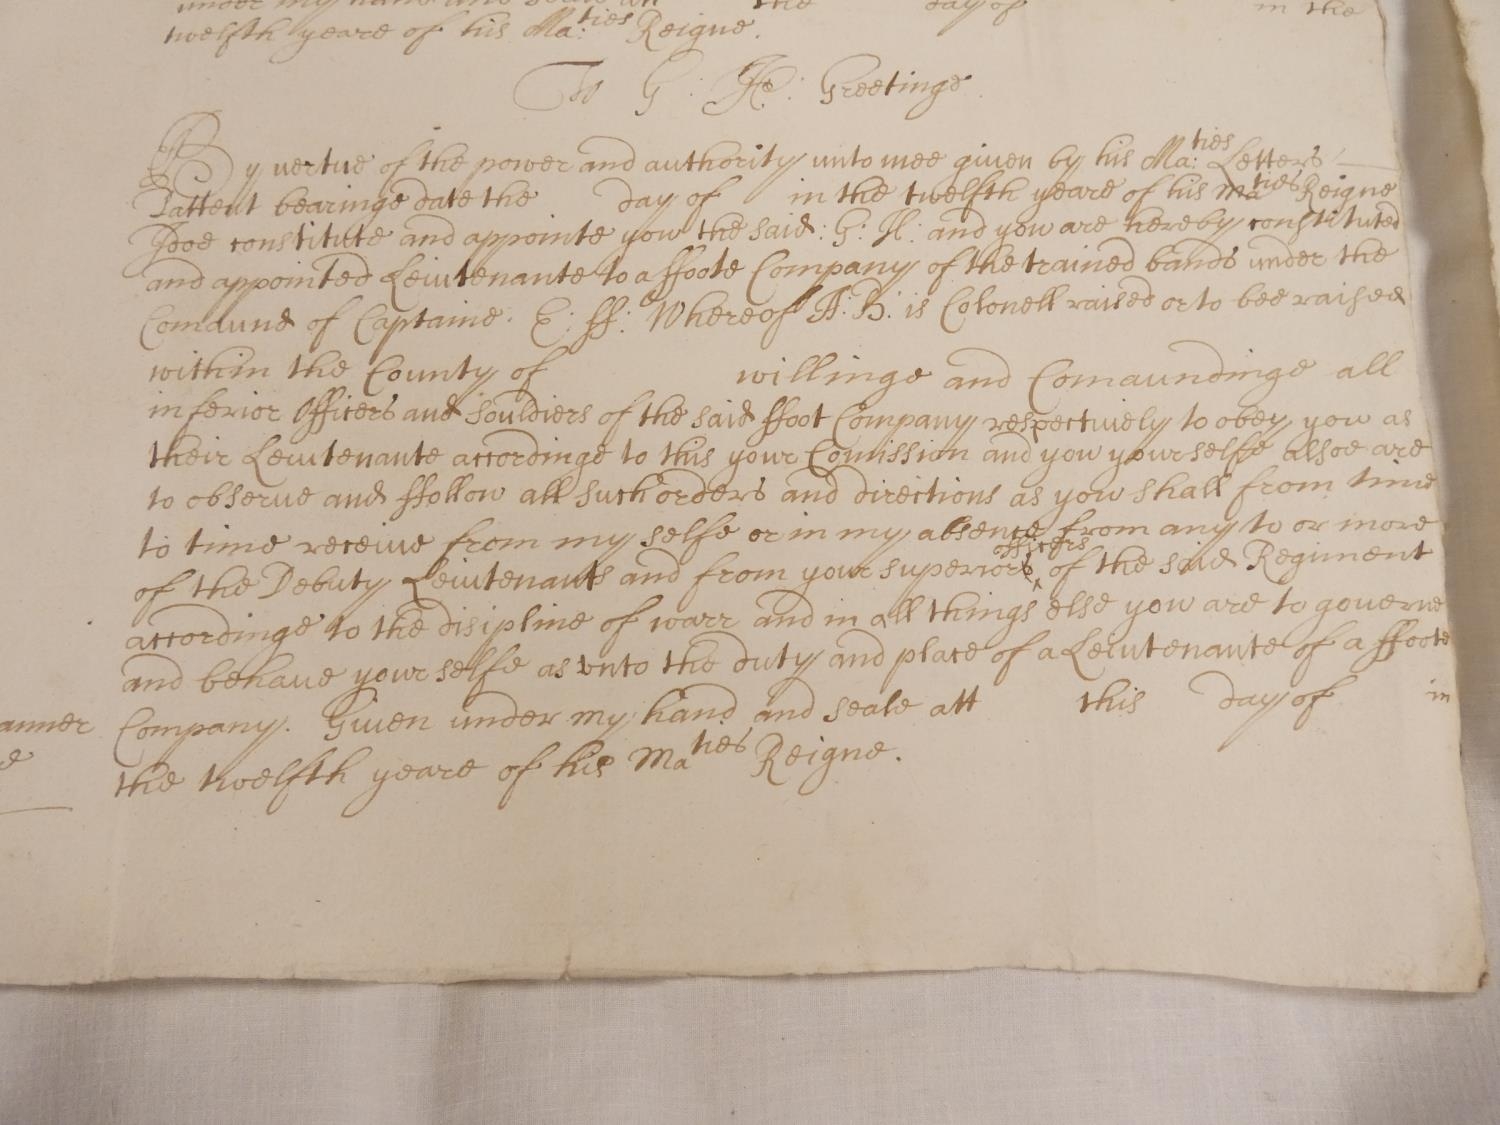 under my hand and seale att the day of in the
twelfth yeare of his Ma:ties Reigne.
To G: H: Greetinge.
By vertue of the power and authority unto mee given by his Ma:ties Letters
Pattent bearinge date the day of in the twelfth yeare of his Maties Reigne
I doe constitute and appointe you the said: G: H: and you are hereby constituted
and appointed Leiutenante to a ffoote Company of the trained bands under the
Comaund of Captaine. E: ff: Whereof A: B: is Colonell raised or to bee raised
within the County of willinge and Comaundinge all
inferior Officers and Souldiers of the said ffoot Company respectively to obey you as
their Leiutenante accordinge to this your Comission and you your selfe alsoe are
to observe and ffollow all such orders and directions as you shall from time
to time receive from my selfe or in my absence from any to or more
of the Debuty Leiutenants and from your superiors officers of the said Regiment
accordinge to the disipline of warr and in all things else you are to governe
and behave your selfe as unto the duty and place of a Leiutenante of a ffoote
anner Company. Given under my hand and seale att this day of in
e the twelfth yeare of his Maties Reigne.